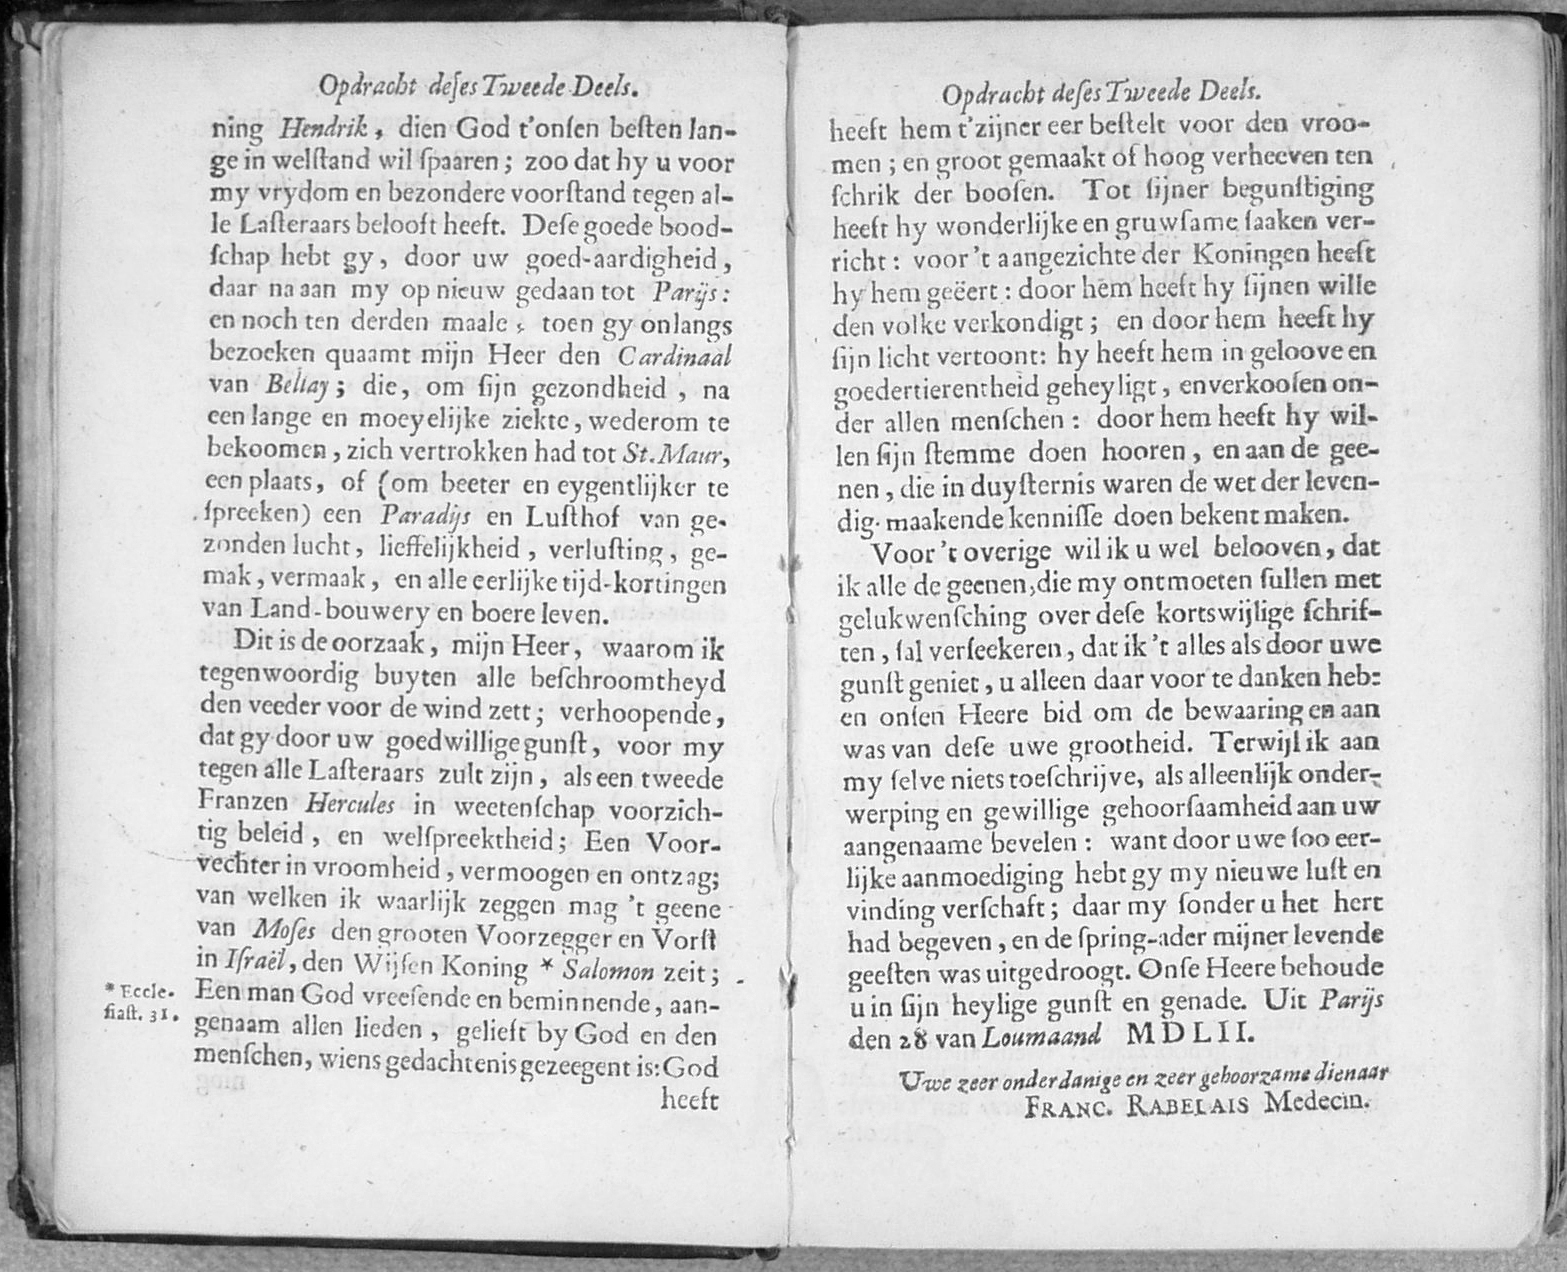 Opdracht deſes Tweede Deels.
ning Hendrik, dien God t'onſen beſten lan-
ge in welſtand wil ſpaaren; zoo dat hy u voor
my vrydom en bezondere voorſtand tegen al-
le Laſteraars belooft heeft. Deſe goede bood-
ſchap hebt gy, door uw goed-aardigheid,
daar na aan my op nieuw gedaan tot Parijs:
en noch ten derden maale, toen gy onlangs
bezoeken quaamt mijn Heer den Cardinaal
van Bellay; die, om ſijn gezondheid, na
een lange en moeyelijke ziekte, wederom te
bekoomen, zich vertrokken had tot St. Maur,
een plaats, of (om beeter en eygentlijker te
ſpreeken) een Paradijs en Luſthof van ge-
zonden lucht, lieffelijkheid, verluſting, ge-
mak, vermaak, en alle eerlijke tijd-kortingen
van Land-bouwery en boere leven.
Dit is de oorzaak, mijn Heer, waarom ik
tegenwoordig buyten alle beſchroomtheyd
den veeder voor de wind zett; verhoopende,
dat gy door uw goedwillige gunſt, voor my
tegen alle Laſteraars zult zijn, als een tweede
Franzen Hercules in weetenſchap voorzich-
tig beleid, en welſpreektheid; Een Voor-
vechter in vroomheid, vermoogen en ontzag;
van welken ik waarlijk zeggen mag 't geene
van Moſes den grooten Voorzegger en Vorſt
in Iſraël, den Wijſen Koning * Salomon zeit;
* Eccle-
ſiaſt. 31.
Een man God vreeſende en beminnende, aan-
genaam allen lieden, gelieft by God en den
menſchen, wiens gedachtenis gezeegent is: God
heeft
Opdracht deſes Tweede Deels.
heeft hem t'zijner eer beſtelt voor den vroo-
men; en groot gemaakt of hoog verheeven ten
ſchrik der booſen. Tot ſijner begunſtiging
heeft hy wonderlijke en gruwſame ſaaken ver-
richt: voor 't aangezichte der Koningen heeft
hy hem geëert: door hem heeft hy ſijnen wille
den volke verkondigt; en door hem heeft hy
ſijn licht vertoont: hy heeft hem in geloove en
goedertierentheid geheyligt, en verkooſen on-
der allen menſchen: door hem heeft hy wil-
len ſijn ſtemme doen hooren, en aan de gee-
nen, die in duyſternis waren de wet der leven-
dig-maakende kenniſſe doen bekent maken.
Voor 't overige wil ik u wel belooven, dat
ik alle de geenen, die my ontmoeten ſullen met
gelukwenſching over deſe kortswijlige ſchrif-
ten, ſal verſeekeren, dat ik 't alles als door uwe
gunſt geniet, u alleen daar voor te danken heb:
en onſen Heere bid om de bewaaring en aan
was van deſe uwe grootheid. Terwijl ik aan
my ſelve niets toeſchrijve, als alleenlijk onder-
werping en gewillige gehoorſaamheid aan uw
aangenaame bevelen: want door uwe ſoo eer-
lijke aanmoediging hebt gy my nieuwe luſt en
vinding verſchaft; daar my ſonder u het hert
had begeven, en de ſpring-ader mijner levende
geeſten was uitgedroogt. Onſe Heere behoude
u in ſijn heylige gunſt en genade. Uit Parijs
den 28 van Loumaand MDLII.
Uwe zeer onderdanige en zeer gehoorzame dienaar
FRANC. RABELAIS Medecin.